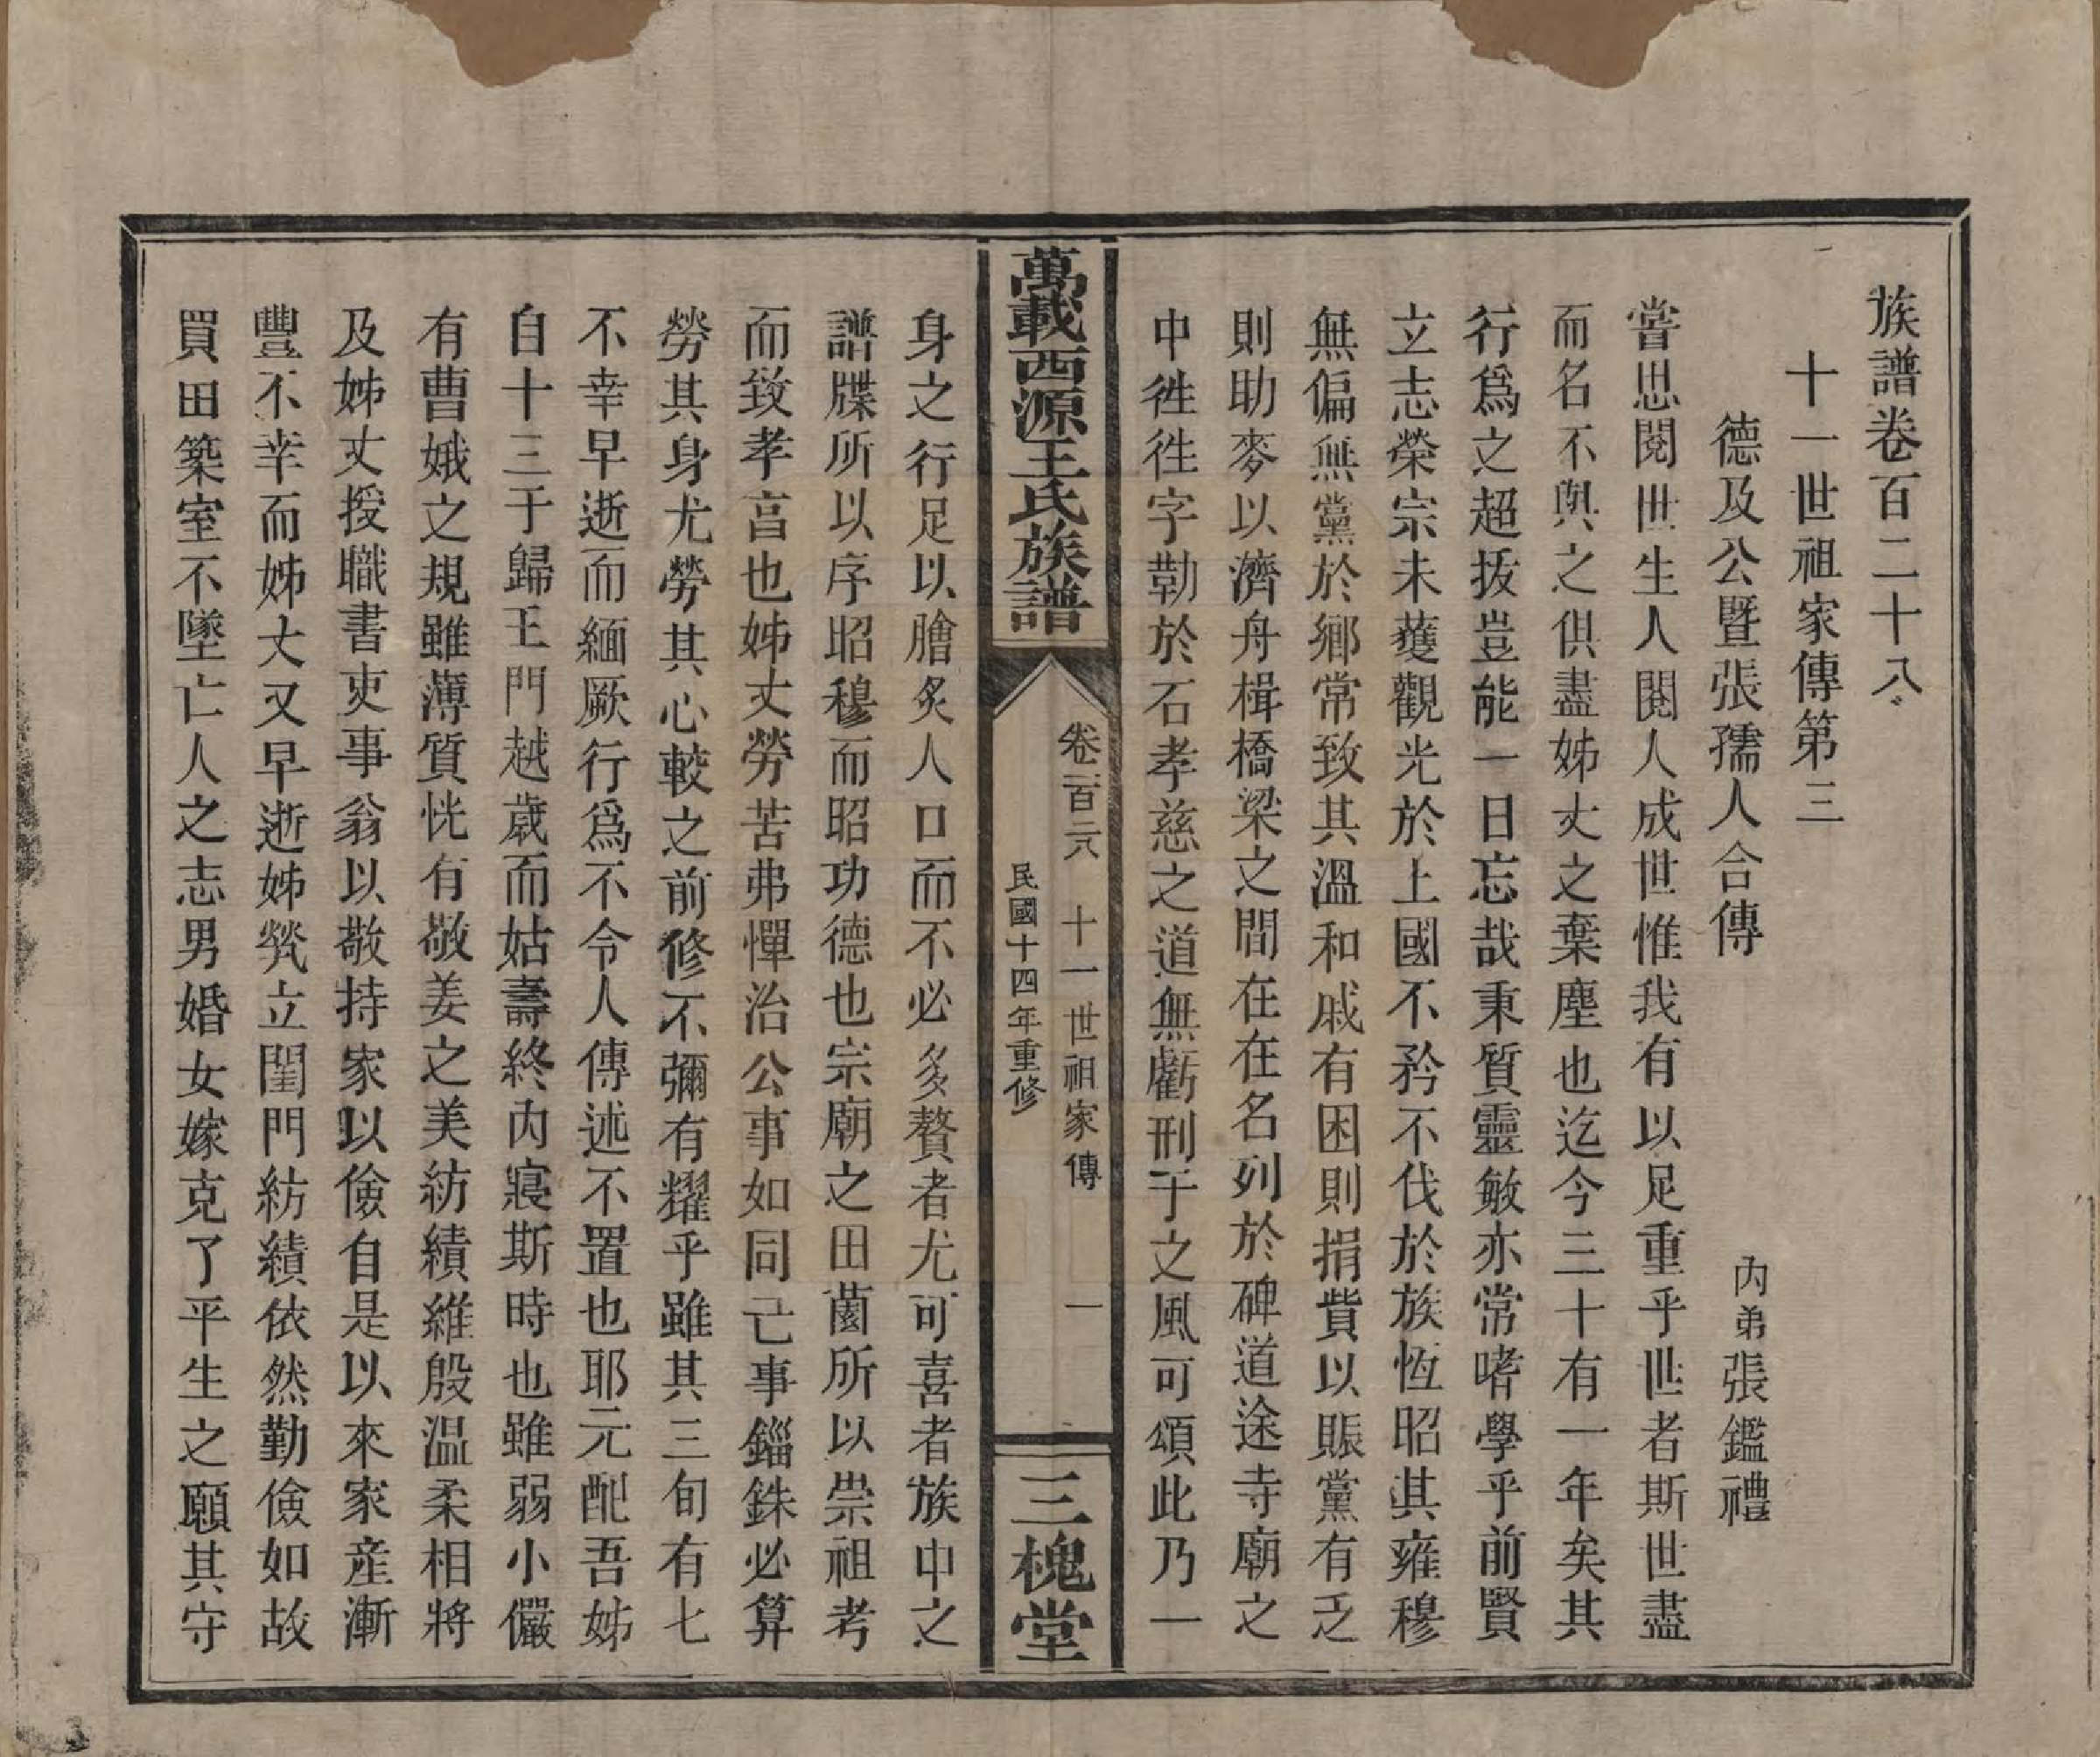 族譜卷百二十八
十一世祖家傳第三
德及公暨張孺人合傳
內弟張鑑禮
嘗思閱世生人閱人成世惟我有以足重乎世者斯世盡
而名不與之俱盡姊丈之棄塵也迄今三十有一年矣其
行爲之超拔豈能一日忘哉秉質靈敏亦常嗜學乎前賢
立志榮宗未蒦觀光於上國不矜不伐於族恆昭其雍穆
無偏無黨於鄉常致其溫和戚有困則捐貲以賑黨有乏
則助麥以濟舟楫橋梁之間在在名列於碑道途寺廟之
中徃徃字勒於石孝慈之道無虧刑于之風可頌此乃一
萬載西源王氏族譜
卷一百二八 十一世祖家傳 一
民國十四年重修
三槐堂
身之行足以膾炙人口而不必多贅者尤可喜者族中之
譜牒所以序昭穆而昭功德也宗廟之田薗所以崇祖考
而致孝亯也姊丈勞苦弗憚治公事如同己事錙銖必算
勞其身尤勞其心較之前修不彌有耀乎雖其三旬有七
不幸早逝而緬厥行爲不令人傳述不置也耶元配吾姊
自十三于歸王門越歲而姑壽終內寢斯時也雖弱小儼
有曹娥之規雖薄質恍有敬姜之美紡績維殷温柔相將
及姊丈授職書吏事翁以敬持家以儉自是以來家產漸
豐不幸而姊丈又早逝姊煢立閨門紡績依然勤儉如故
買田築室不墜亡人之志男婚女嫁克了平生之願其守